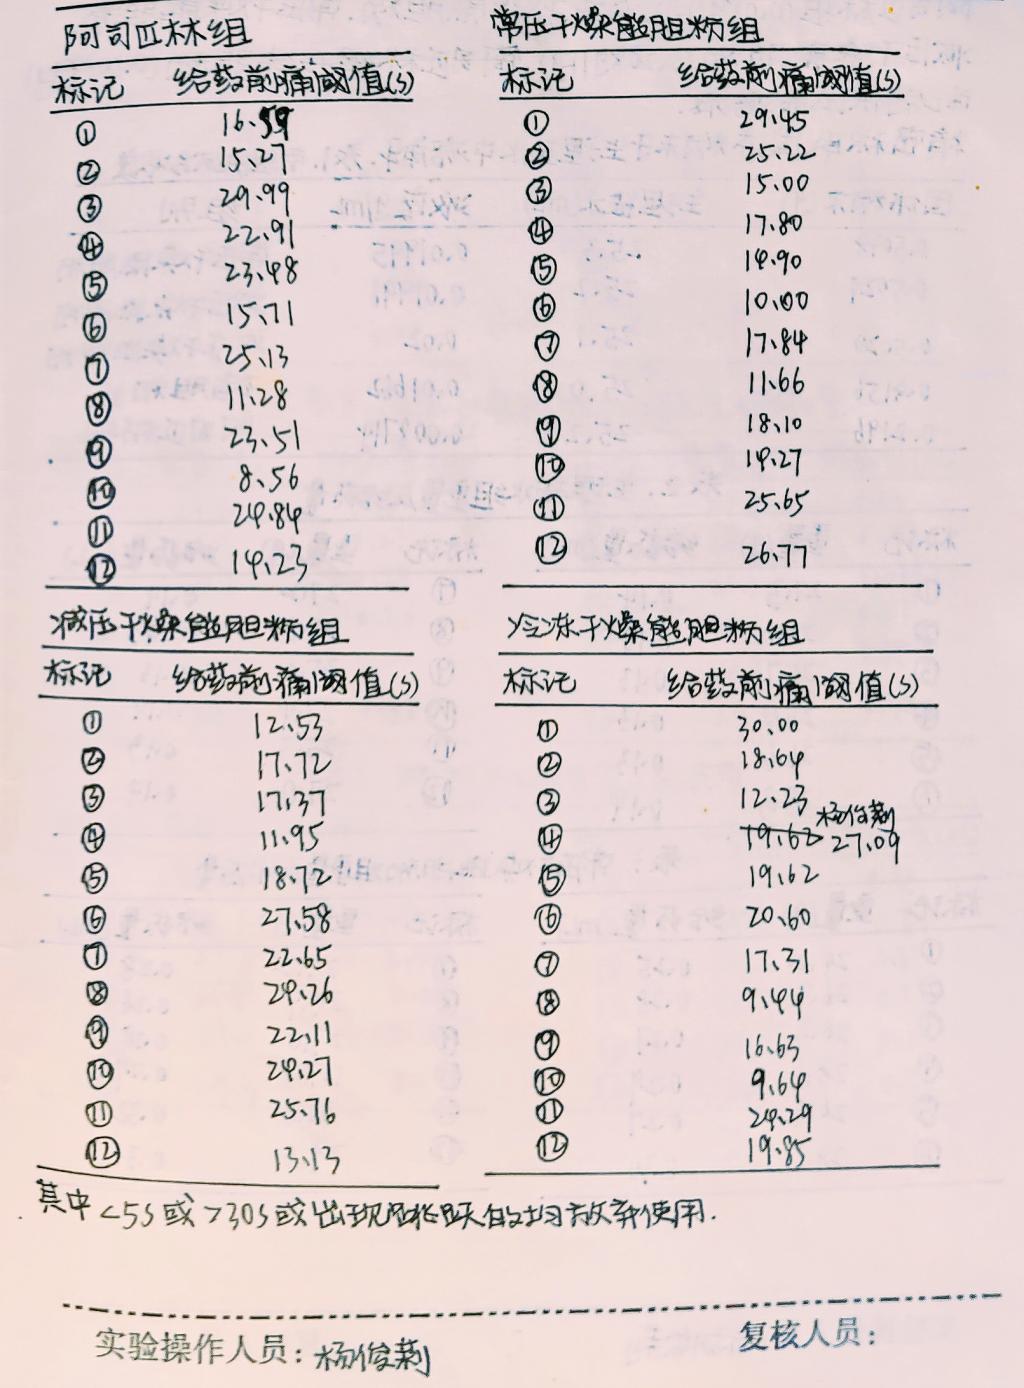 阿司匹林组
标记 给药前痛阈值(s)
① 16.59
② 15.27
③ 29.99
④ 22.91
⑤ 23.48
⑥ 15.71
⑦ 25.13
⑧ 11.28
⑨ 23.51
⑩ 8.56
⑪ 24.84
⑫ 14.23
常压干燥熊胆粉组
标记 给药前痛阈值(s)
① 29.45
② 25.22
③ 15.00
④ 17.80
⑤ 14.90
⑥ 10.00
⑦ 17.84
⑧ 11.66
⑨ 18.10
⑩ 14.27
⑪ 25.65
⑫ 26.77
减压干燥熊胆粉组
标记 给药前痛阈值(s)
① 12.53
② 17.72
③ 17.37
④ 11.95
⑤ 18.72
⑥ 27.58
⑦ 22.65
⑧ 24.26
⑨ 22.11
⑩ 24.27
⑪ 25.76
⑫ 13.13
冷冻干燥熊胆粉组
标记 给药前痛阈值(s)
① 30.00
② 18.64
③ 12.23
④ 19.62 杨俊莉 27.09
⑤ 19.62
⑥ 20.60
⑦ 17.31
⑧ 9.44
⑨ 16.63
⑩ 9.64
⑪ 24.29
⑫ 19.85
其中<5s或>30s或出现跳跃的均放弃使用.
实验操作人员：杨俊莉
复核人员：